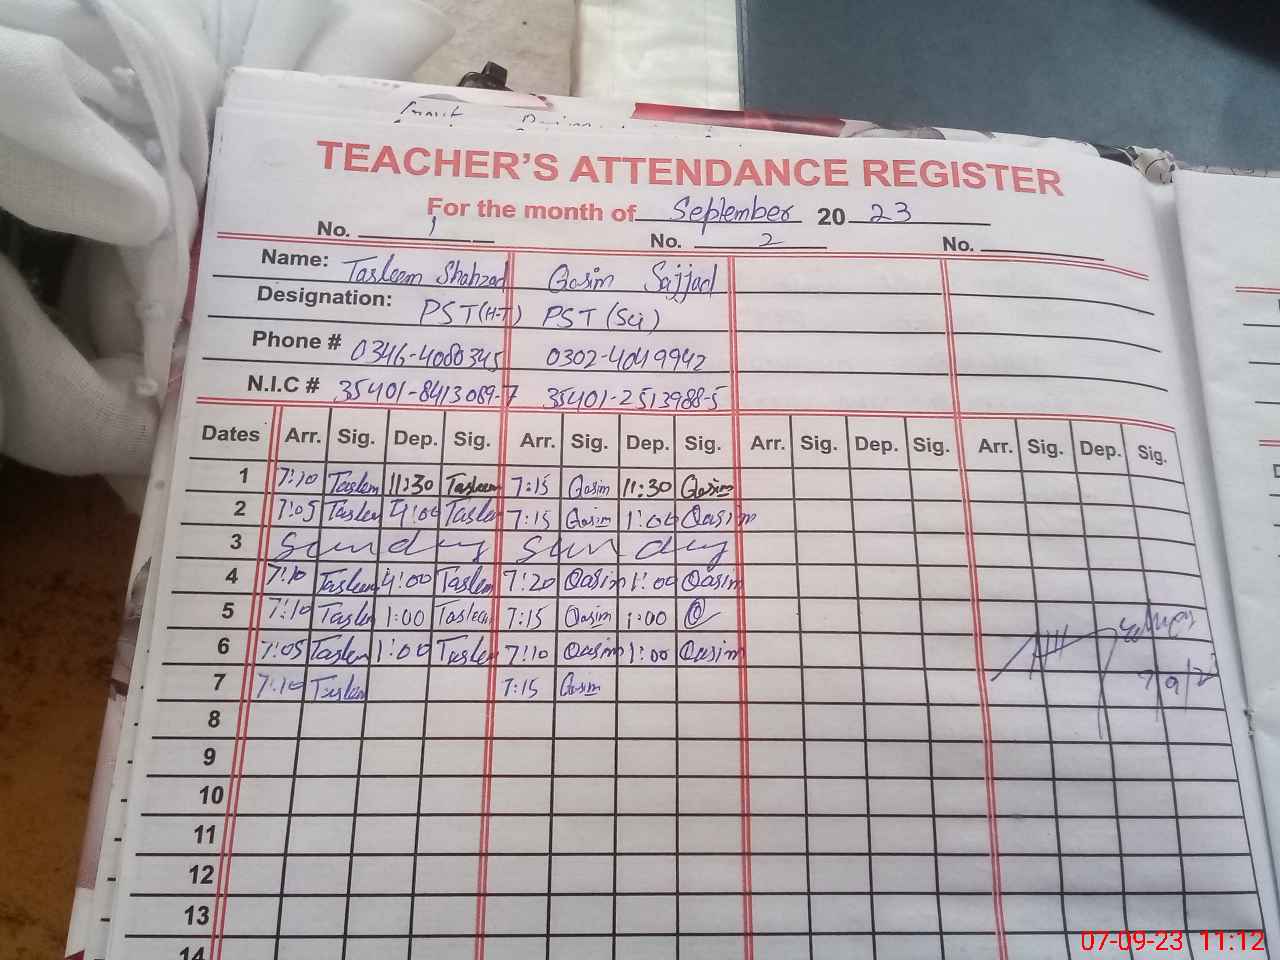 TEACHER'S ATTENDANCE REGISTER
For the month of September 20 23
No. 1 No. 2 No.
Name: Tasleem Shahzad Qasim Sajjad
Designation: PST(H-T) PST (Sci)
Phone # 0346-4080345 0302-4049942
N.I.C # 35401-8413069-7 35401-2513988-5
Dates Arr. Sig. Dep. Sig. Arr. Sig. Dep. Sig. Arr. Sig. Dep. Sig. Arr. Sig. Dep. Sig.
1 7:10 Taslem 11:30 Tasleem 7:15 Qasim 11:30 Qasim
2 7:05 Taslem 4:00 Taslem 7:15 Qasim 1:00 Qasim
3 Sunday Sunday
4 7:10 Tasleem 4:00 Taslem 7:20 Qasim 1:00 Qasim
5 7:10 Taslem 1:00 Tasleem 7:15 Qasim 1:00 Q
6 7:05 Taslem 1:00 Taslem 7:10 Qasim 1:00 Qasim
7 7:10 Taslem 7:15 Qasim
7/9/23
8
9
10
11
12
13
14
07-09-23 11:12